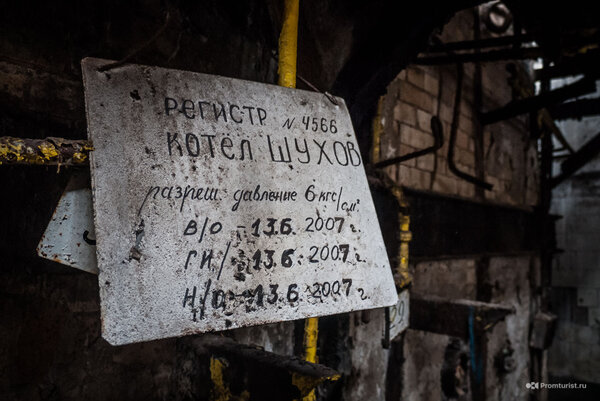 РЕГИСТР N 4566
КОТЁЛ ШУХОВ
разреш. давление 6 кгс/см²
В/О - 13.6. 2007 г
ГИ/ - 13.6. 2007 г
Н/О - 13.6. 2007 г
Promturist.ru